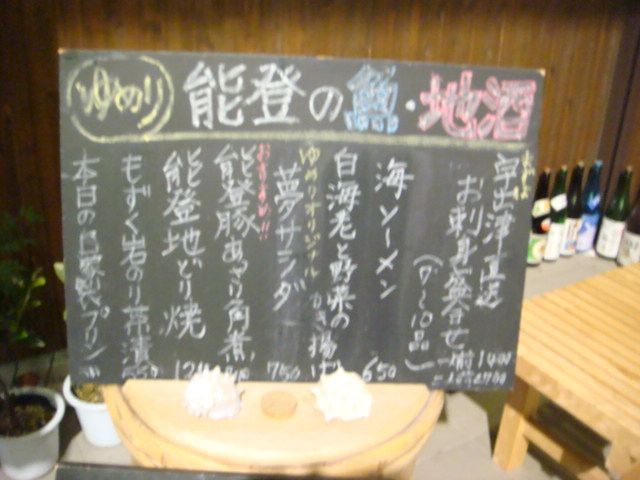 ゆめり
能登の魚・地酒
宇出津直送
お刺身盛合せ
(7~10品)
一人前 1400
二人前 2700
海ソーメン
650
白海老と野菜のかき揚げ
ゆめりオリジナル
夢サラダ
750
おすすめ!!
能登豚あっさり角煮
能登地どり焼
もずく岩のり茶漬
本日の自家製プリン